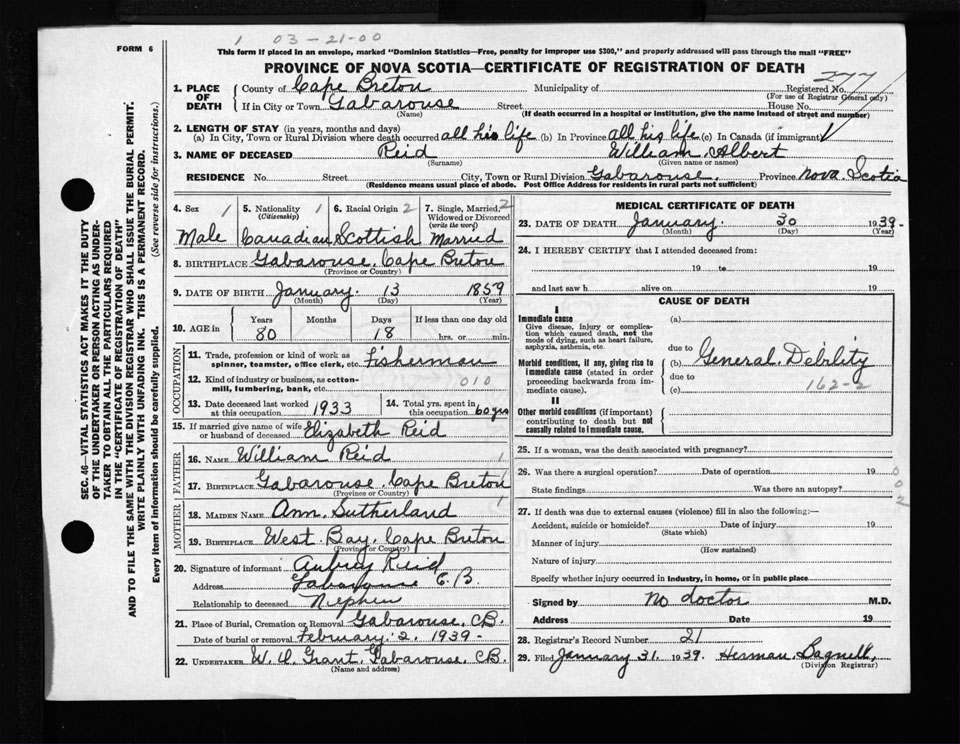 1 03-21-00
FORM 6
This form if placed in an envelope, marked "Dominion Statistics—Free, penalty for improper use $300," and properly addressed will pass through the mail "FREE"
PROVINCE OF NOVA SCOTIA—CERTIFICATE OF REGISTRATION OF DEATH
277
1. PLACE OF DEATH
County of Cape Breton Municipality of Registered No.
(For use of Registrar General only)
If in City or Town Gabarouse Street House No.
(Name) (If death occurred in a hospital or institution, give the name instead of street and number)
2. LENGTH OF STAY (in years, months and days)
(a) In City, Town or Rural Division where death occurred all his life (b) In Province all his life (c) In Canada (if immigrant)
3. NAME OF DECEASED Reid William Albert
(Surname) (Given name or names)
RESIDENCE No. Street City, Town or Rural Division Gabarouse. Province Nova Scotia
(Residence means usual place of abode. Post Office Address for residents in rural parts not sufficient)
SEC. 46—VITAL STATISTICS ACT MAKES IT THE DUTY
OF THE UNDERTAKER OR PERSON ACTING AS UNDER-
TAKER TO OBTAIN ALL THE PARTICULARS REQUIRED
IN THE "CERTIFICATE OF REGISTRATION OF DEATH"
AND TO FILE THE SAME WITH THE DIVISION REGISTRAR WHO SHALL ISSUE THE BURIAL PERMIT.
WRITE PLAINLY WITH UNFADING INK. THIS IS A PERMANENT RECORD.
Every item of information should be carefully supplied. (See reverse side for instructions.)
4. Sex 1 5. Nationality 1 6. Racial Origin 2 7. Single, Married, 2
(Citizenship) Widowed or Divorced
(write the word)
Male Canadian Scottish Married
8. BIRTHPLACE Gabarouse, Cape Breton
(Province or Country)
9. DATE OF BIRTH January 13 1859
(Month) (Day) (Year)
10. AGE in Years Months Days If less than one day old
80 18 hrs. or min.
OCCUPATION
11. Trade, profession or kind of work as
spinner, teamster, office clerk, etc. Fisherman
12. Kind of industry or business, as cotton-
mill, lumbering, bank, etc. 010
13. Date deceased last worked
at this occupation 1933
14. Total yrs. spent in
this occupation 60 yrs
15. If married give name of wife
or husband of deceased Elizabeth Reid
FATHER
16. NAME William Reid 1
17. BIRTHPLACE Gabarouse, Cape Breton
(Province or Country)
MOTHER
18. MAIDEN NAME Ann Sutherland 1
19. BIRTHPLACE West Bay, Cape Breton
(Province or Country)
20. Signature of informant Aubrey Reid
Address Gabarouse C.B.
Relationship to deceased Nephew
21. Place of Burial, Cremation or Removal Gabarouse, C.B.
Date of burial or removal February 2, 1939-
22. UNDERTAKER W. D. Grant, Gabarouse, C.B.
(Name and address)
MEDICAL CERTIFICATE OF DEATH
23. DATE OF DEATH January 30 1939-
(Month) (Day) (Year)
24. I HEREBY CERTIFY that I attended deceased from:
19 to 19
and last saw h alive on 19
CAUSE OF DEATH
I
Immediate cause (a)
Give disease, injury or complica-
tion which caused death, not the
mode of dying, such as heart failure,
asphyxia, asthenia, etc.
due to
Morbid conditions, if any, giving rise to
immediate cause (stated in order
proceeding backwards from im-
mediate cause).
(b) General Debility
due to
(c) 162-2
II
Other morbid conditions (if important)
contributing to death but not
causally related to immediate cause.
25. If a woman, was the death associated with pregnancy?
26. Was there a surgical operation? Date of operation 19 0
State findings Was there an autopsy? 0
2
27. If death was due to external causes (violence) fill in also the following:—
Accident, suicide or homicide? Date of injury 19
(State which)
Manner of injury
(How sustained)
Nature of injury
Specify whether injury occurred in industry, in home, or in public place
Signed by no doctor M.D.
Address Date 19
28. Registrar's Record Number 21
29. Filed January 31, 1939. Herman Bagnell,
(Division Registrar)